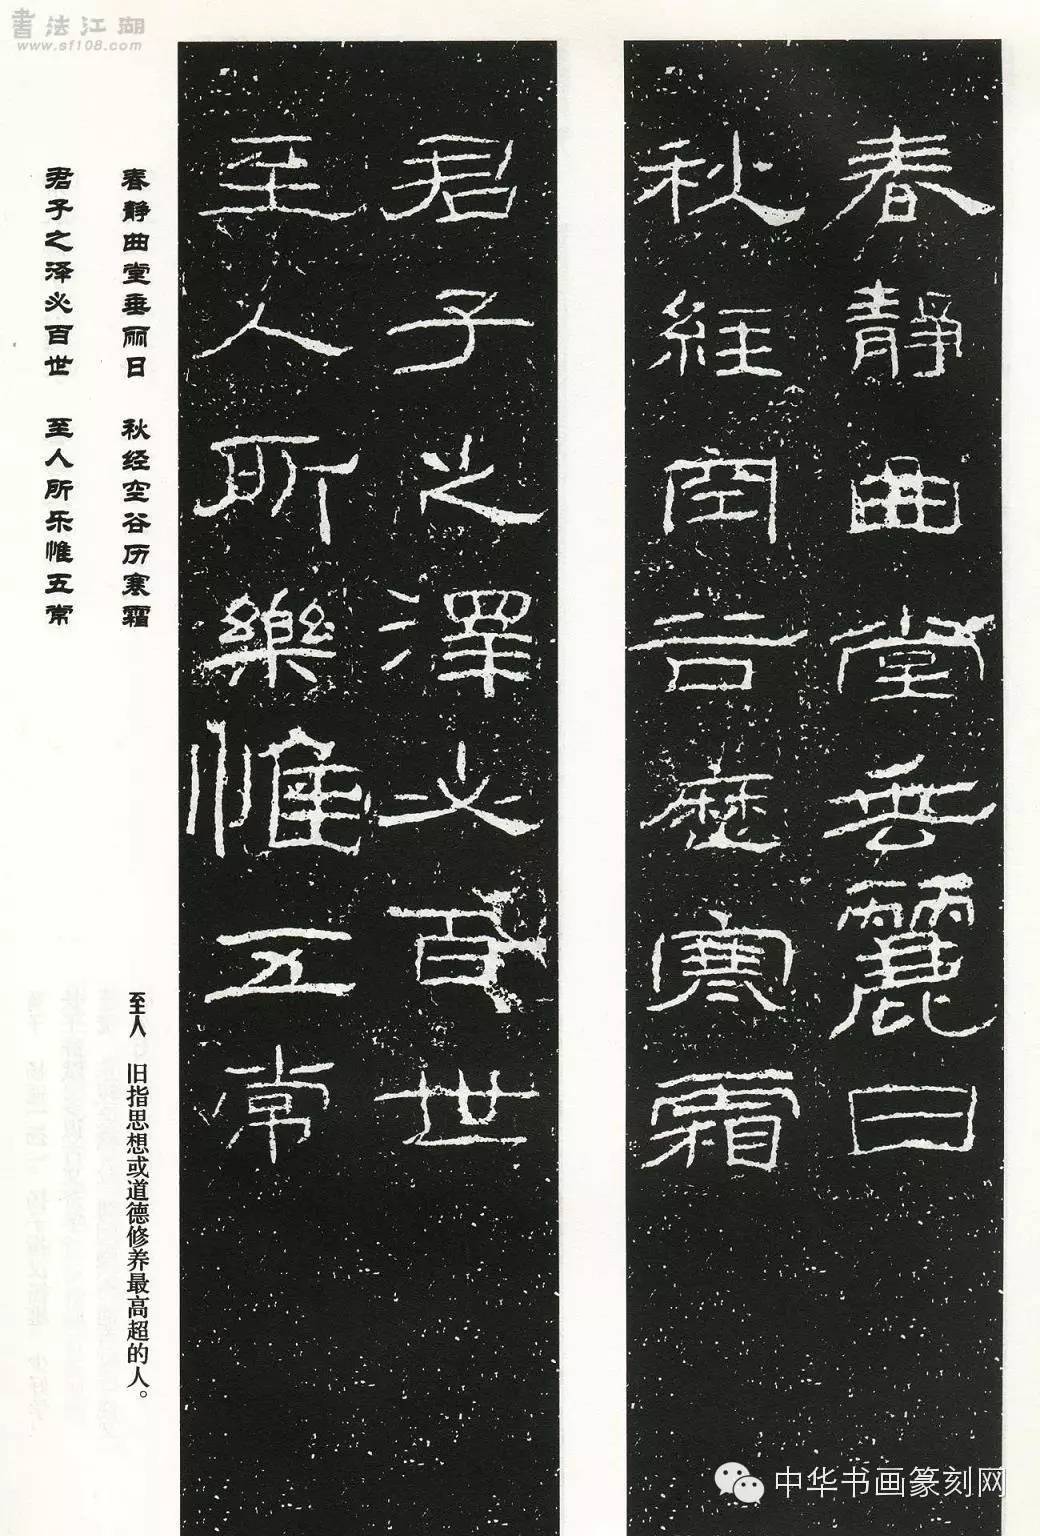 書法江湖
www.sf108.com
春靜曲堂垂麗日
秋經空谷歷寒霜
君子之澤必百世
至人所樂惟五常
春静曲堂垂丽日 秋经空谷历寒霜
君子之泽必百世 至人所乐惟五常
至人 旧指思想或道德修养最高超的人。
中华书画篆刻网